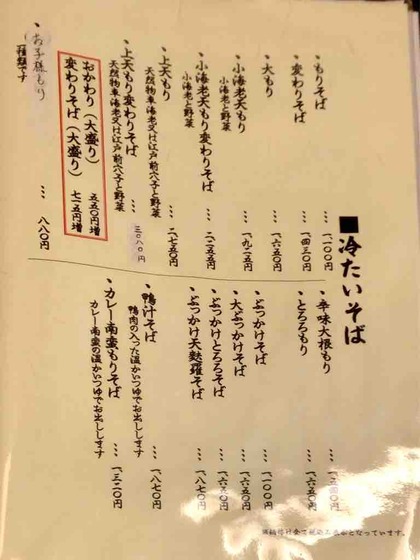 ■冷たいそば
・もりそば … 一、一〇〇円
・変わりそば … 一、四三〇円
・大もり … 一、六五〇円
・小海老天もり … 一、九二五円
小海老と野菜
・小海老天もり変わりそば … 二、二五五円
小海老と野菜
・上天もり … 二、七五〇円
天然物車海老又は江戸前穴子と野菜
・上天もり変わりそば … 三、〇八〇円
天然物車海老又は江戸前穴子と野菜
おかわり(大盛り) 五五〇円増
変わりそば(大盛り) 七一五円増
・お子様もり … 八八〇円
(一種類です
・辛味大根もり …
・とろろもり … 一、六五〇円
・ぶっかけそば … 一、一〇〇円
・大ぶっかけそば … 一、六五〇円
・ぶっかけとろろそば … 一、六五〇円
・ぶっかけ天麩羅そば … 一、八七〇円
・鴨汁そば … 一、八七〇円
鴨肉の入った温かいつゆでお出しします
・カレー南蛮もりそば … 一、三二〇円
カレー南蛮の温かいつゆでお出しします
※価格は全て税込
となっています。